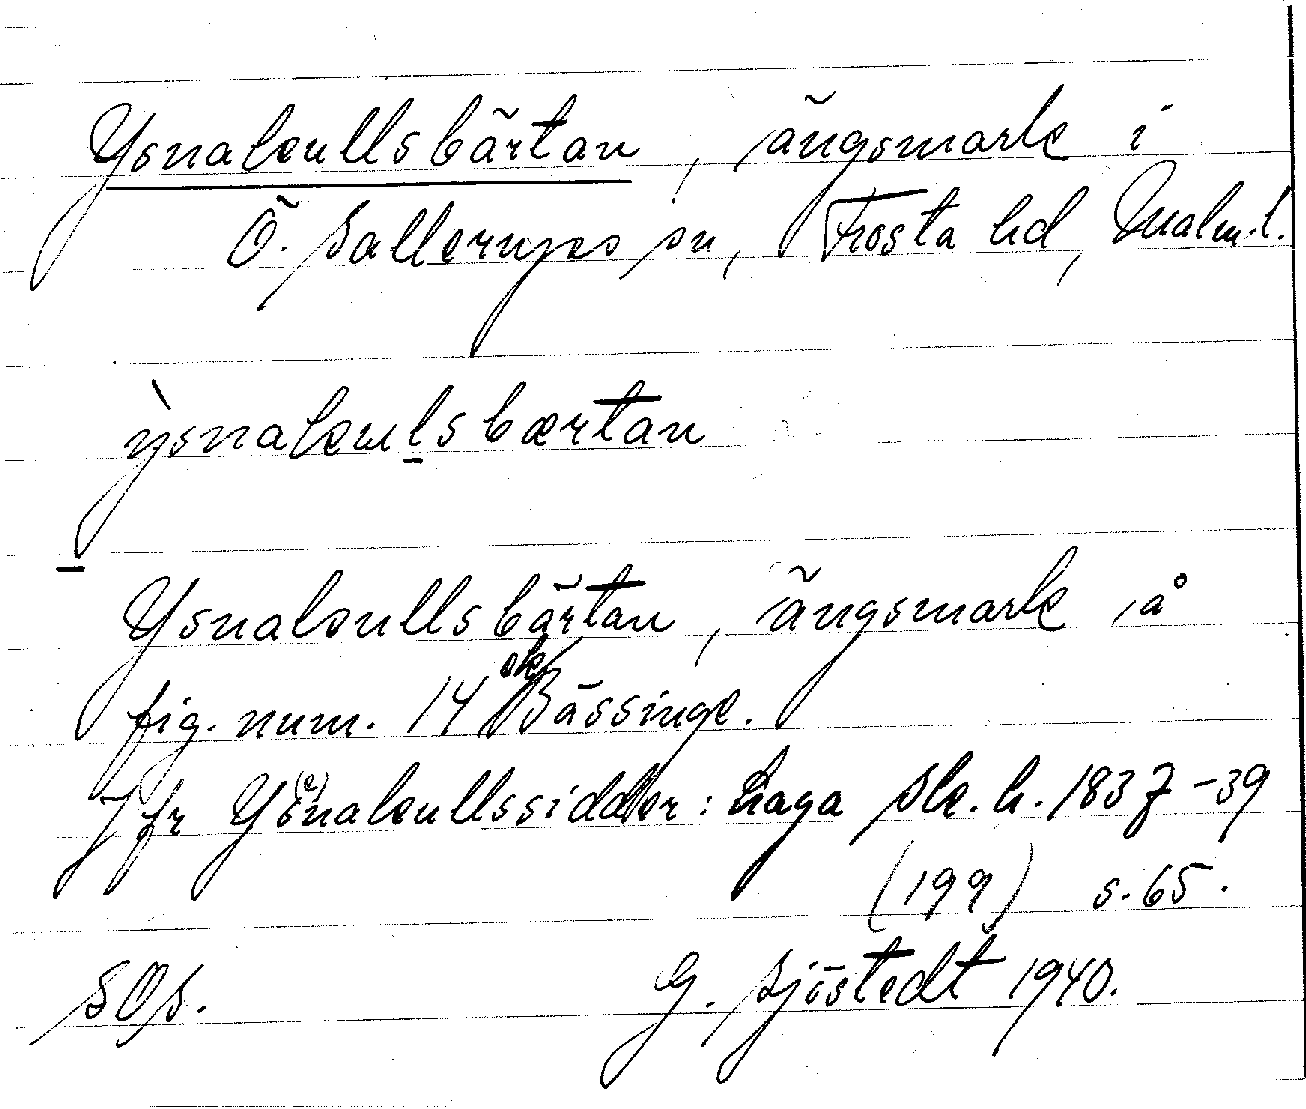 Ysnakullsbärtan, ängsmark i
Ö. Sallerups sn, Frosta hd, Malm.l.
ỳsnakulsbærtan
Ysnakullsbärtan, ängsmark å
fig. num. 14 sk Bässinge.
Jfr Ysnakullssidder: Laga Sk. h. 1837-39
(199) s. 65.
SOS.
G. Sjöstedt 1940.